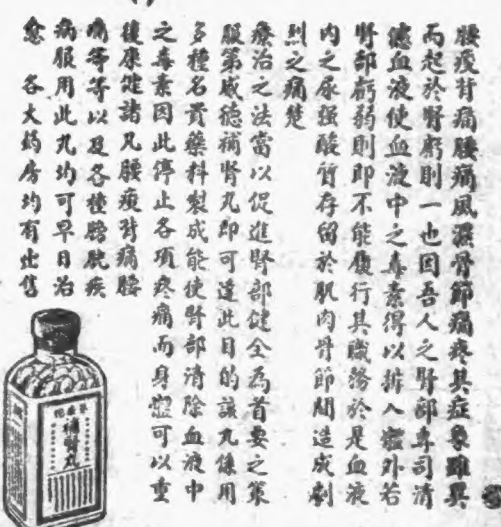 腰痠背痛腰痛風濕骨節痛疼其症象雖異
而起於腎虧則一也因吾人之腎部專司清
濾血液使血液中之毒素得以排入體外若
腎部虧弱則即不能履行其職務於是血液
內之尿強酸質存留於肌肉骨節間造成劇
烈之痛楚
療治之法當以促進腎部健全為首要之策
服第威德補腎丸即可達此目的該丸係用
多種名貴藥料製成能使腎部清除血液中
之毒素因此停止各項疼痛而身體可以重
復康健諸凡腰痠背痛腰
痛等等以及各種膀胱疾
病服用此丸均可早日治
愈　各大藥房均有出售
第威德
補腎丸